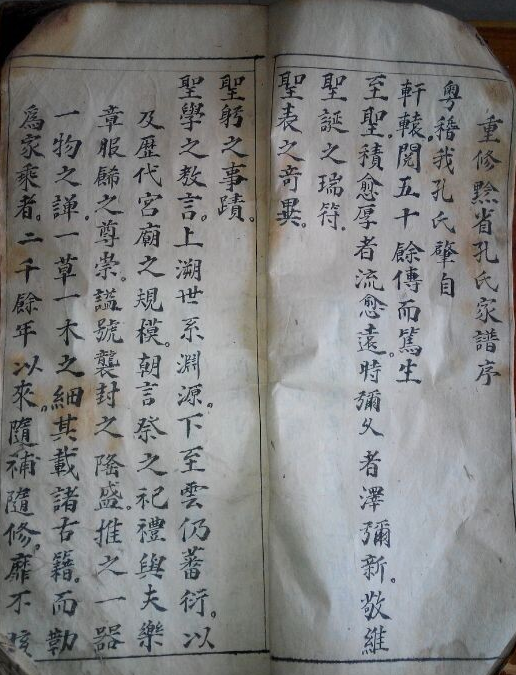 重修黔省孔氏家譜序
粵稽我孔氏肇自
軒轅。閱五十餘傳而篤生
至聖。積愈厚者流愈遠。時彌久者澤彌新。敬維
聖誕之瑞符。
聖表之奇異。
聖躬之事蹟。
聖學之教言。上溯世系淵源。下至雲仍蕃衍。以
及歷代宮廟之規模。朝言祭之祀禮與夫樂
章服飾之尊崇。謚號襲封之隆盛。推之一器
一物之誹一草一木之細其載諸古籍。而勒
為家乘者。二千餘年以來。隨補隨修。靡不